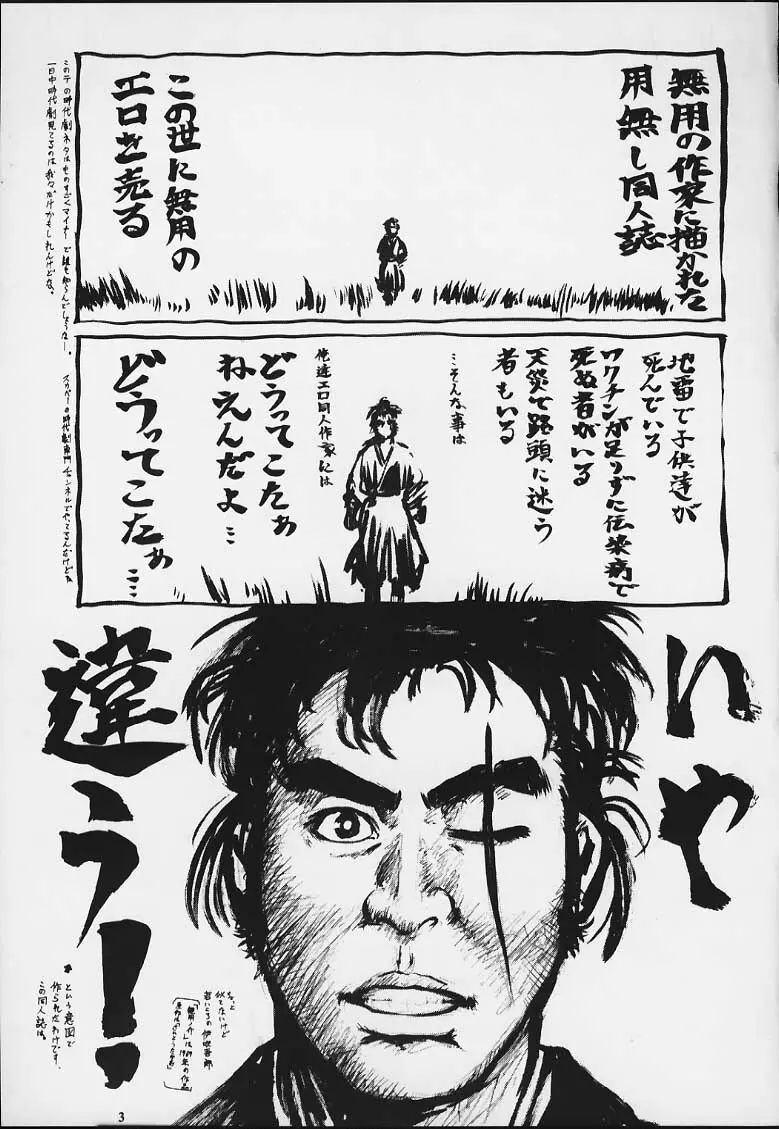 無用の作家に描かれた
用無し同人誌
この世に無用の
エロを売る
地雷で子供達が
死んでいる
ワクチンが足りずに伝染病で
死ぬ者がいる
天災で路頭に迷う
者もいる
…そんな事は
俺達エロ同人作家には
どうってこたぁ
ねえんだよ…
どうってこたぁ……
この手の時代劇ネタはものすごくマイナーで誰も知らんでしょうなー。
スカパーの時代劇専門チャンネルでやってるんだけどね
一日中時代劇見てるのは我々だけかもしれんけどな。
いや
違う!
ちっと
似てないけど
若いころの伊吹吾郎
「無用ノ介」は1969年の作品
という意図で
作られたわけです、
この同人誌は。
3